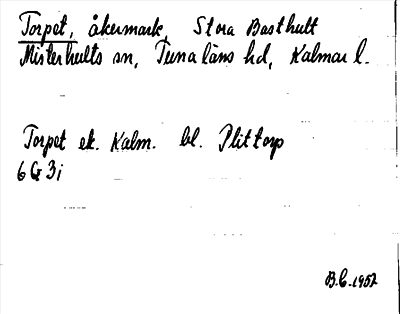 Torpet, åkermark, Stora Basthult
Misterhults sn, Tunaläns hd, Kalmar l.
Torpet ek. Kalm. bl. Plittorp
6G3i
B.C. 1957